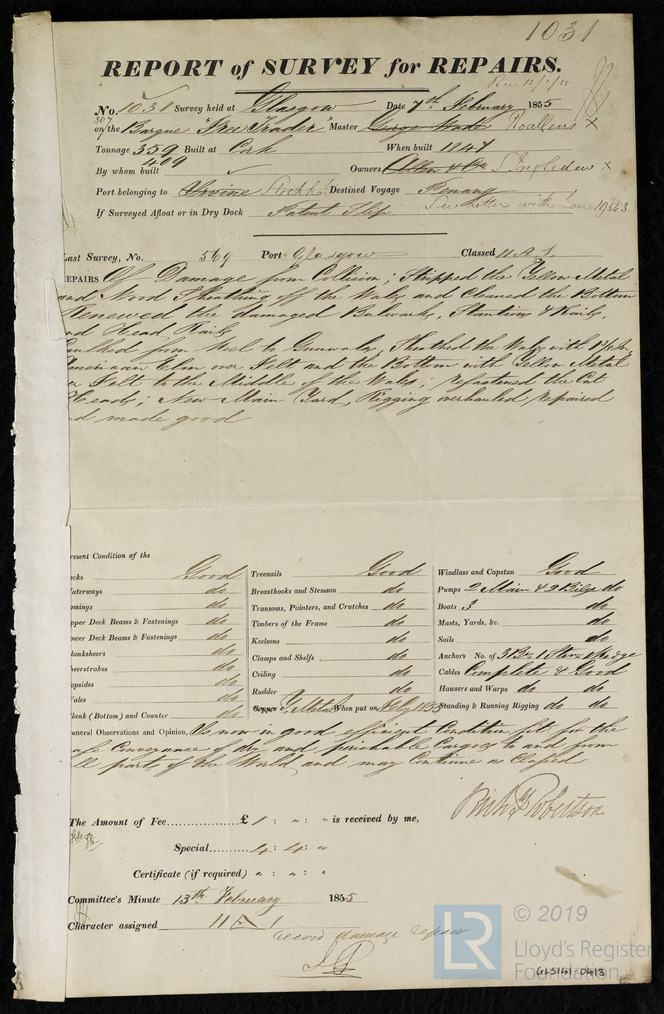 1031
REPORT of SURVEY for REPAIRS.
No. 1031 Survey held at Glasgow Date 7th February 1855
307
on the Barque "Free Trader" Master George Roallens x
Tonnage 359 Built at Cork When built 1847
409
By whom built Owners Allan & Co S. Ingledew x
Port belonging to Irvine Destined Voyage Penang
If Surveyed Afloat or in Dry Dock Patent Slip See letter with Lon 19543
Last Survey, No. 569 Port Glasgow Classed 11 A 1
EPAIRS Of Damage from Collision; Stripped the Yellow Metal
and Wood Sheathing off the Wales and Cleaned the Bottom
Renewed the damaged Bulwarks, Stantions & Rails,
and Head Rails
Caulked from Keel to Gunwales, Sheathed the Wales with
American Elm over Felt and the Bottom with Yellow Metal
over Felt to the Middle of the Wales; refastened the Cat
Heads; New Main Yard, Rigging overhauled, repaired
d made good
resent Condition of the
ecks Good Treenails Good Windlass and Capstan Good
aterways do Breasthooks and Stemson do Pumps 2 Main & 2 Bilge do
omings do Transoms, Pointers, and Crutches do Boats 3 do
pper Deck Beams & Fastenings do Timbers of the Frame do Masts, Yards, &c. do
ower Deck Beams & Fastenings do Keelsons do Sails do
lanksheers do Clamps and Shelfs do Anchors No. of 3 Br. 1 Strm 1 Kedge
heerstrakes do Ceiling do Cables Complete & Good
opsides do Rudder do Hawsers and Warps do do
ales do Copper Y. Metal When put on Feby 1855 Standing & Running Rigging do do
lank (Bottom) and Counter do
eneral Observations and Opinion, Is now in good efficient Condition fit for the
safe Conveyance of dry and perishable Cargoes to and from
all parts of the World and may Continue as Classed
The Amount of Fee £ 1 : " : " is received by me,
Robertson
Special 4 : 4 : "
Certificate (if required) " : " : "
Committee's Minute 13th February 1855
Character assigned 11 A 1
record damage repair
© 2019
LR
Lloyd's Register
Foundation
GLS141-0413